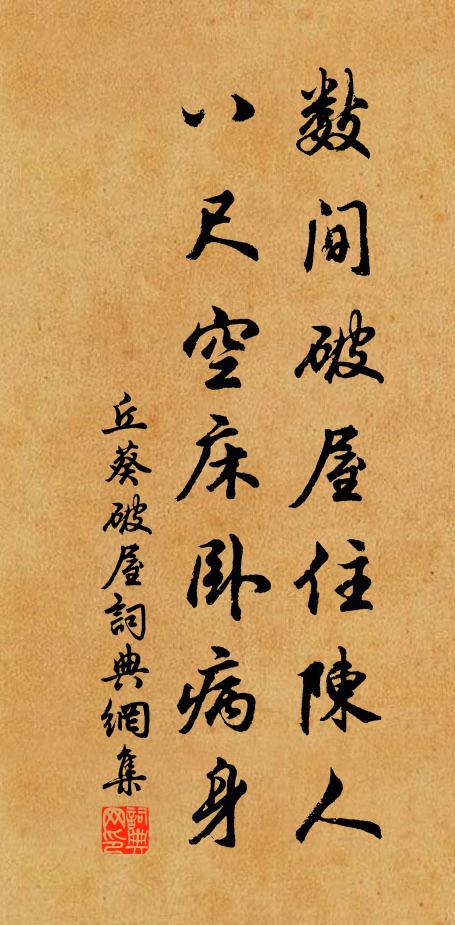 数间破屋住陳人
八尺空床卧病身
丘葵破屋詞典網集
詞典网印